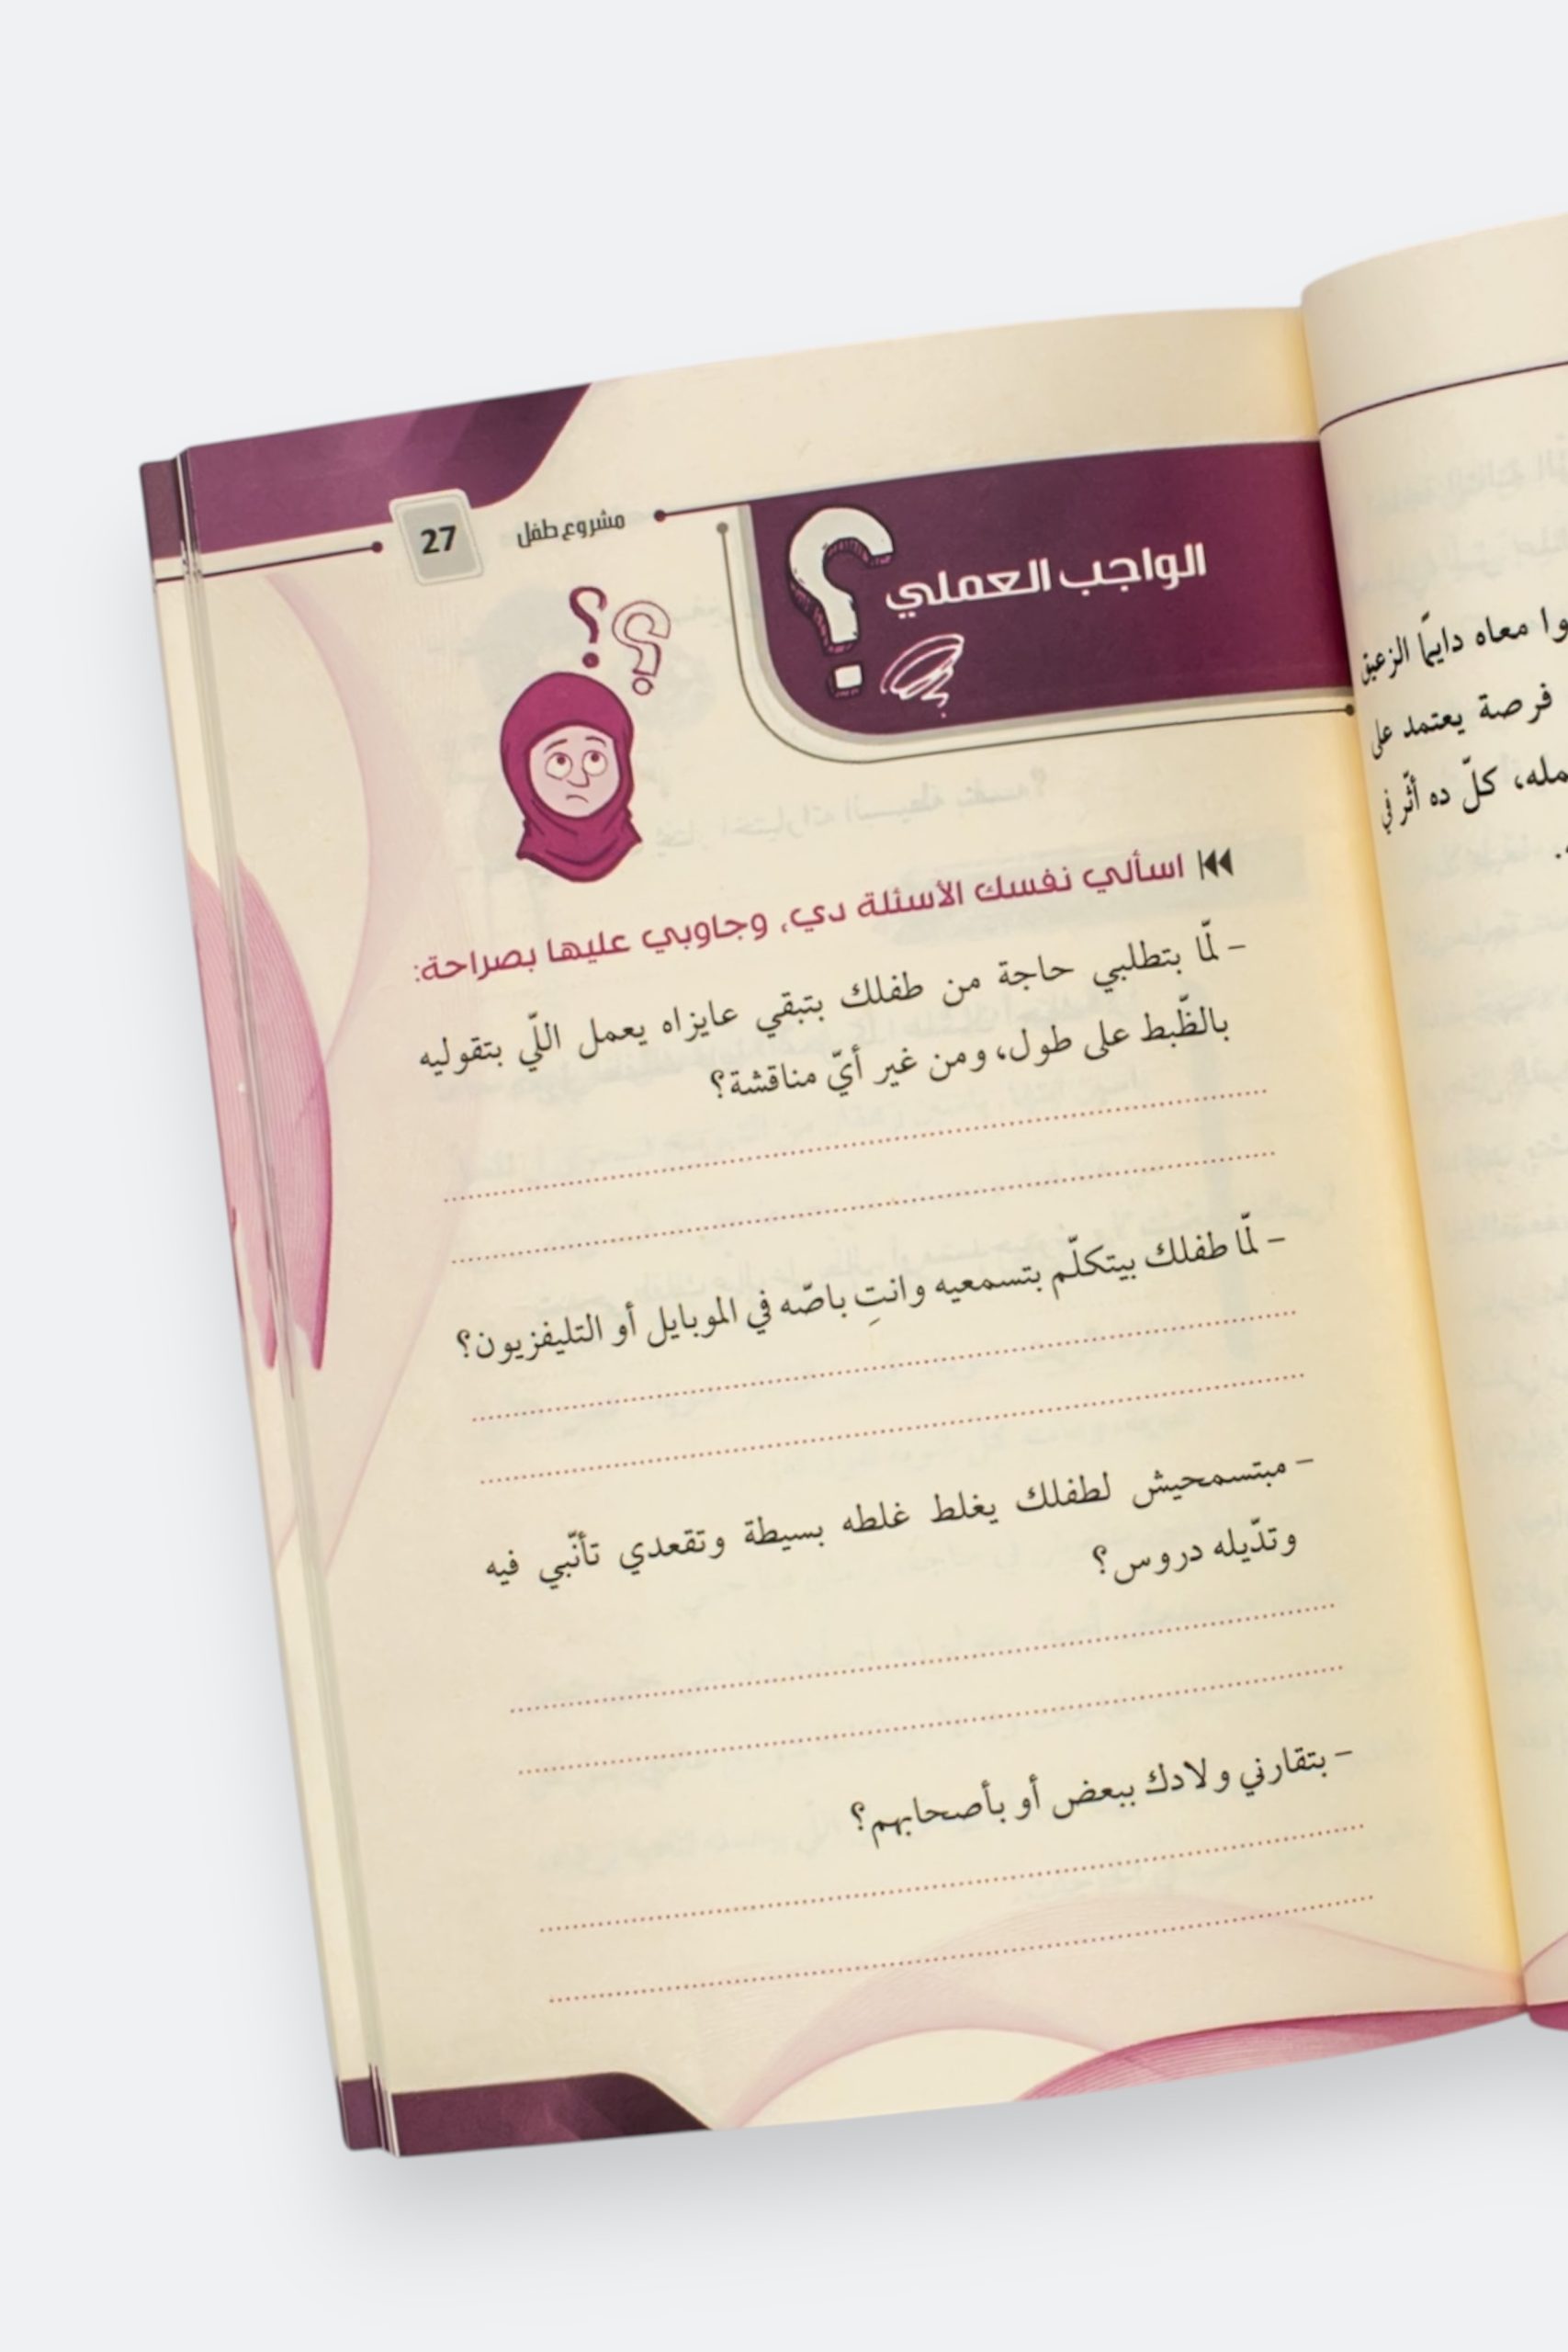 27
مشروع طفل
الواجب العملي
اسألي نفسك الأسئلة دي، وجاوبي عليها بصراحة:
– لمّا بتطلبي حاجة من طفلك بتبقي عايزاه يعمل اللّي بتقوليه
بالظّبط على طول، ومن غير أيّ مناقشة؟
– لمّا طفلك بيتكلّم بتسمعيه وانتِ باصّه في الموبايل أو التليفزيون؟
– مبتسمحيش لطفلك يغلط غلطه بسيطة وتقعدي تأنّبي فيه
وتدّيله دروس؟
– بتقارني ولادك ببعض أو بأصحابهم؟
وا معاه دايمًا الزعيق
فرصة يعتمد على
مله، كلّ ده أثّر في